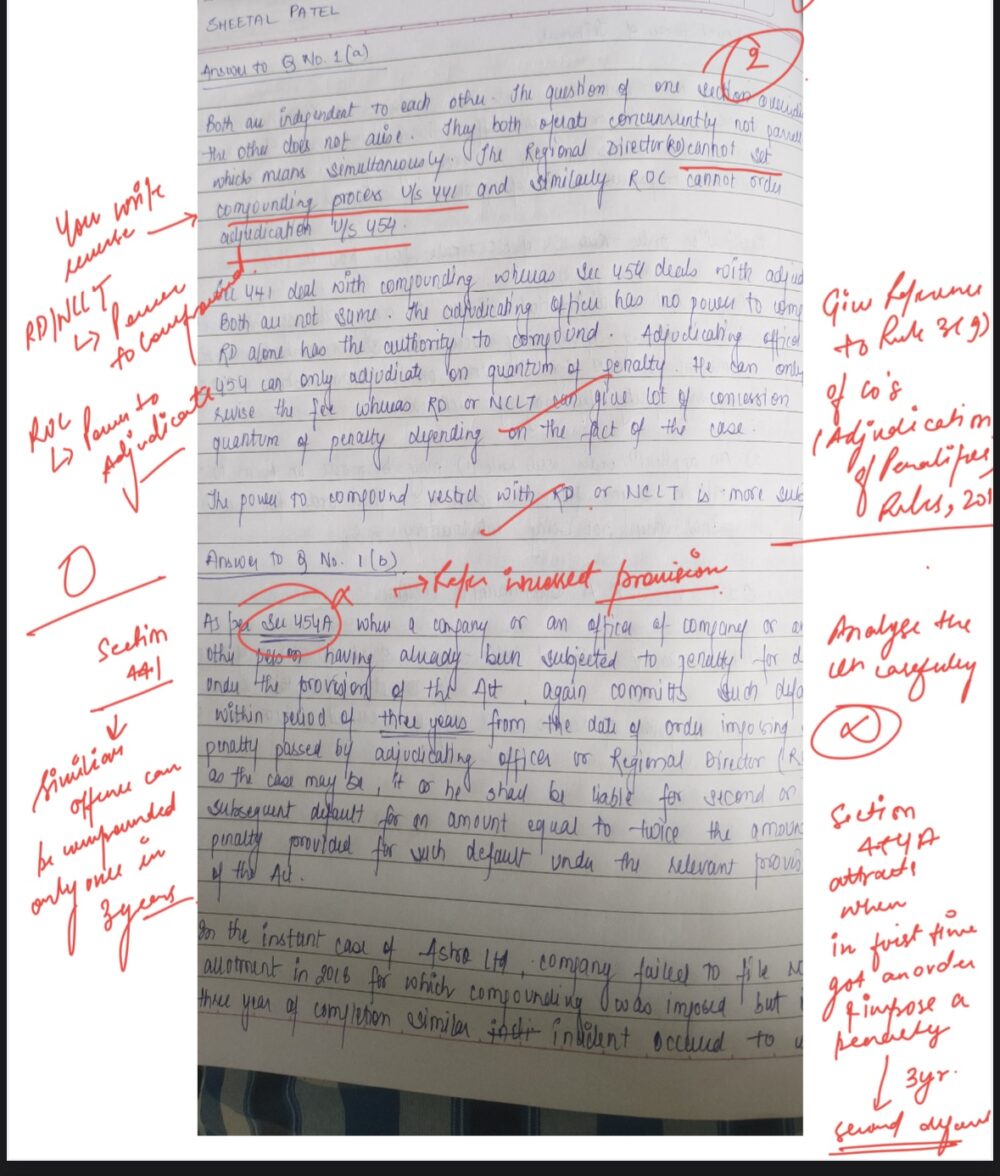 SHEETAL PATEL
Answer to Q No. 1(a)
2
Both are independent to each other. The question of one section
the other does not arise. They both operate concurrently not
which means simultaneously. The Regional Director (RD) cannot set
compounding process u/s 441 and similarly ROC cannot order
adjudication u/s 454.
You write
reverse
RD/NCLT
↳ Power
to compound.
ROC
↳ Power to
Adjudicate
Sec 441 deal with compounding whereas Sec 454 deals with
Both are not same. The adjudicating officer has no power to
RD alone has the authority to compound. Adjudicating
454 can only adjudicate on quantum of penalty. He can only
revise the fee whereas RD or NCLT can give lot of concession
quantum of penalty depending on the fact of the case.
The power to compound vested with RD or NCLT is more
Give Reference
to Rule 3(9)
of Co's
(Adjudication
of Penalties)
Rules, 201
Answer to Q No. 1(b)
→ Refer incorrect provision
0
Section
441
↓
offence can
be compounded
only once in
3 years
As per Sec 454A when a company or an officer of company or
person having already been subjected to penalty for
under the provision of the Act, again committs such
within period of three years from the date of order imposing
penalty passed by adjudicating officer or Regional Director
as the case may be, it or he shall be liable for second or
subsequent default for an amount equal to twice the
penalty provided for such default under the relevant
of the Act.
In the instant case of Astra Ltd, company failed to file
allotment in 2018 for which compounding was imposed but
three year of completion similar incident occured to
Analyse the
carefully
Section
attracts
when
in first time
got an order
impose a
penalty
↓ 3yr.
second